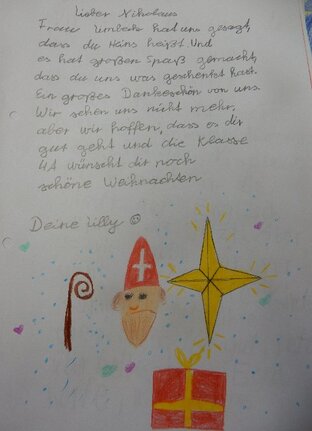 Lieber Nikolaus
Frau Umbach hat uns gesagt,
dass du Hans heißt. Und
es hat großen Spaß gemacht,
dass du uns was geschenkt hast.
Ein großes Dankeschön von uns.
Wir sehen uns nicht mehr,
aber wir hoffen, dass es dir
gut geht und die Klasse
4A wünscht dir noch
schöne Weihnachten
Deine Lilly ☺